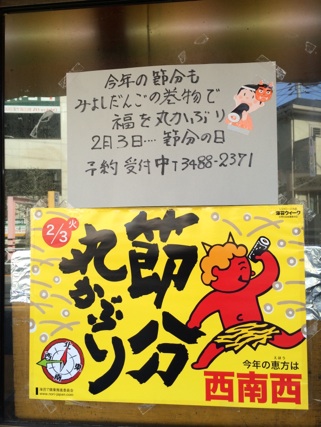 今年の節分も
みよしだんごの巻物で
福を丸かぶり
2月3日…. 節分の日
予約受付中 T3488-2371
2/3火
節分
丸かぶり
今年の恵方は
えほう
西南西